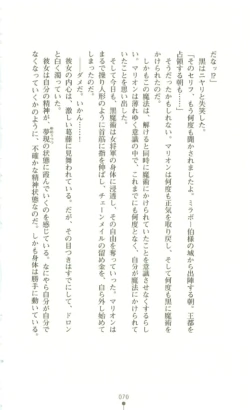 だなッ!?」
　黒はニヤリと失笑した。
「そのセリフ、もう何度も聞きましたよ。ミラボー伯様の城から出陣する朝、王都を
占領する朝も……」
　そうだったかもしれない。マリオンは何度も正気を取り戻し、そして何度も黒に魔術を
かけられたのだ。
　しかもこの魔法は、解けると同時に魔術にかけられていたことを意識させなくするらし
い。マリオンは薄れゆく意識の中で、これまでにも何度となく、自分が魔法にかけられて
いたことを思い出した。
　そして今日も、黒魔術は女将軍の身体に浸透し、その自由を奪っていった。マリオンは
まるで操り人形のように首筋に指を伸ばし、チェーンメイルの留め金を、自ら外し始めて
しまったのだ。
　――ダメだ。いかん……。
　彼女の内心は、激しい葛藤に見舞われている。だが、その目つきはすでにして、ドロン
と白く濁っていた。
　彼女は自分の精神が、夢現の状態に霞んでいくのを感じている。なにやら自分が自分で
なくなっていくかのように、不確かな精神状態なのだ。しかも身体は勝手に動いている。
070